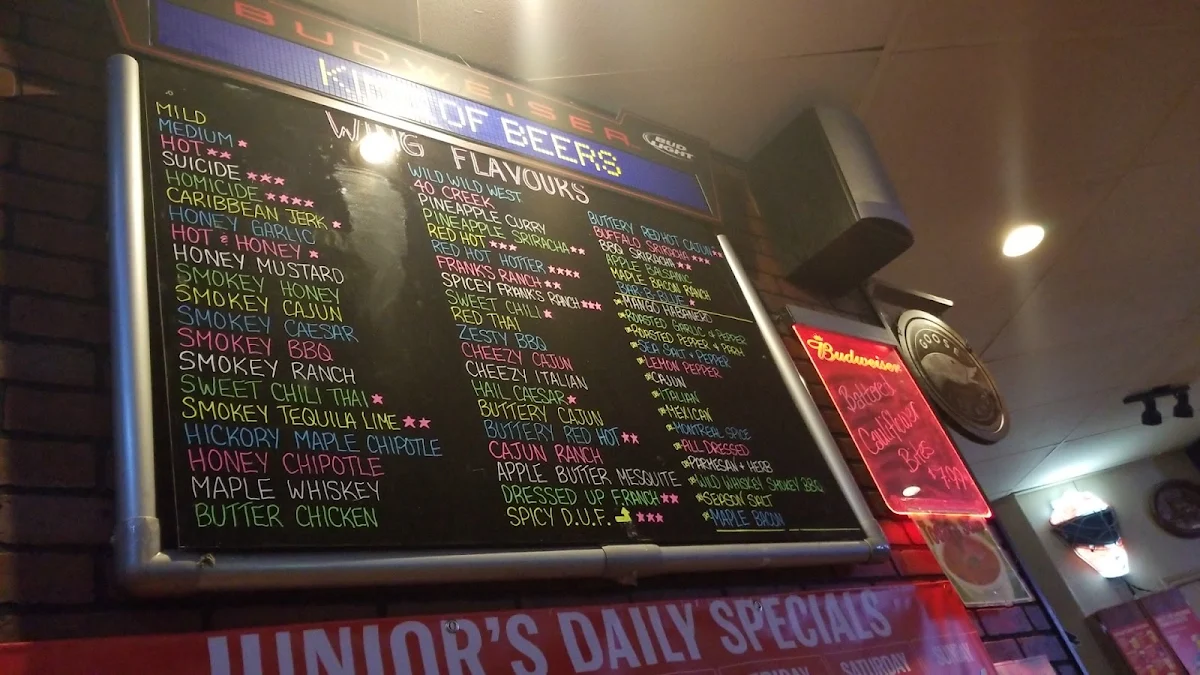 BUDWEISER
KING OF BEERS
BUD LIGHT
WING FLAVOURS
MILD
MEDIUM *
HOT **
SUICIDE ***
HOMICIDE ****
CARIBBEAN JERK *
HONEY GARLIC
HOT & HONEY *
HONEY MUSTARD
SMOKEY HONEY
SMOKEY CAJUN
SMOKEY CAESAR
SMOKEY BBQ
SMOKEY RANCH
SWEET CHILI THAI *
SMOKEY TEQUILA LIME **
HICKORY MAPLE CHIPOTLE
HONEY CHIPOTLE
MAPLE WHISKEY
BUTTER CHICKEN
WILD WILD WEST
40 CREEK
PINEAPPLE CURRY
PINEAPPLE SRIRACHA **
RED HOT ***
RED HOT HOTTER ****
FRANK'S RANCH **
SPICEY FRANK'S RANCH ***
SWEET CHILI *
RED THAI
ZESTY BBQ
CHEEZY CAJUN
CHEEZY ITALIAN
HAIL CAESAR *
BUTTERY CAJUN
BUTTERY RED HOT **
CAJUN RANCH
APPLE BUTTER MESQUITE
DRESSED UP FRANCH **
SPICY D.U.F. ***
BUTTERY RED HOT CAJUN
BUFFALO SRIRACHA ***
BBQ SRIRACHA **
APPLE
MAPLE BACON RANCH
MANGO HABANERO
ROASTED GARLIC & PEPPER
ROASTED PEPPER &
SEA SALT & PEPPER
LEMON PEPPER
CAJUN
ITALIAN
MEXICAN
MONTREAL SPICE
ALL DRESSED
PARMESAN & HERB
WILD WHISKEY SMOKEY BBQ
SEASON SALT
MAPLE BACON
Budweiser
Battered
Cauliflower
Bites
$7.99
GOOSE
JUNIOR'S DAILY SPECIALS
SATURDAY